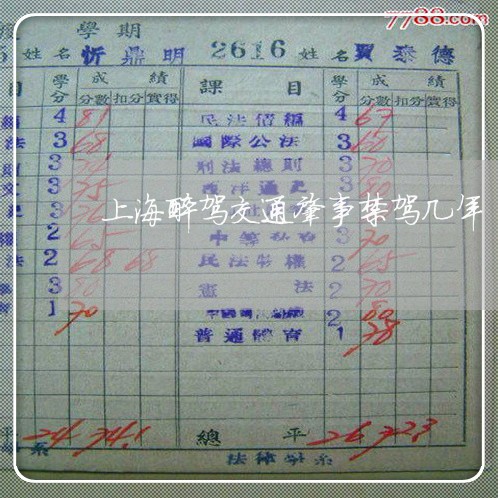 7788.com
學期
姓名 忻鼎明 2616 姓名 賈泰德
目 學分 成績 課目 學分 成績
分數 扣分 實得 分數 扣分 實得
4 81 民法債編 4 67
法 3 68 國際公法 3 60
3 刑法總則 3 70
3 75 西洋通史 3
上海醉驾交通肇事禁驾几年
2 65 3 70
法 2 68 68 民法物權 2 65
3 80 憲法 2 70
1 70 2 80
普通體育 1 78
平 24 74.1 總平 26 72.3
系 法律學系